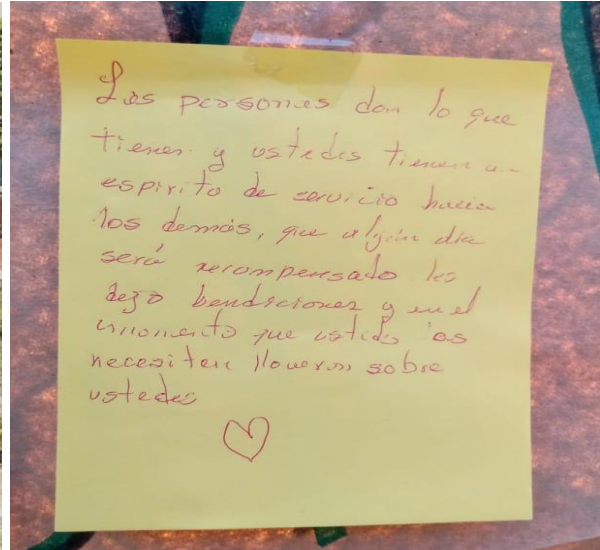 Las personas dan lo que
tienen y ustedes tienen un
espirito de servicio hacia
los demás, que algún día
será recompensado les
dejo bendiciones y en el
momento que ustedes las
necesiten lloveran sobre
ustedes